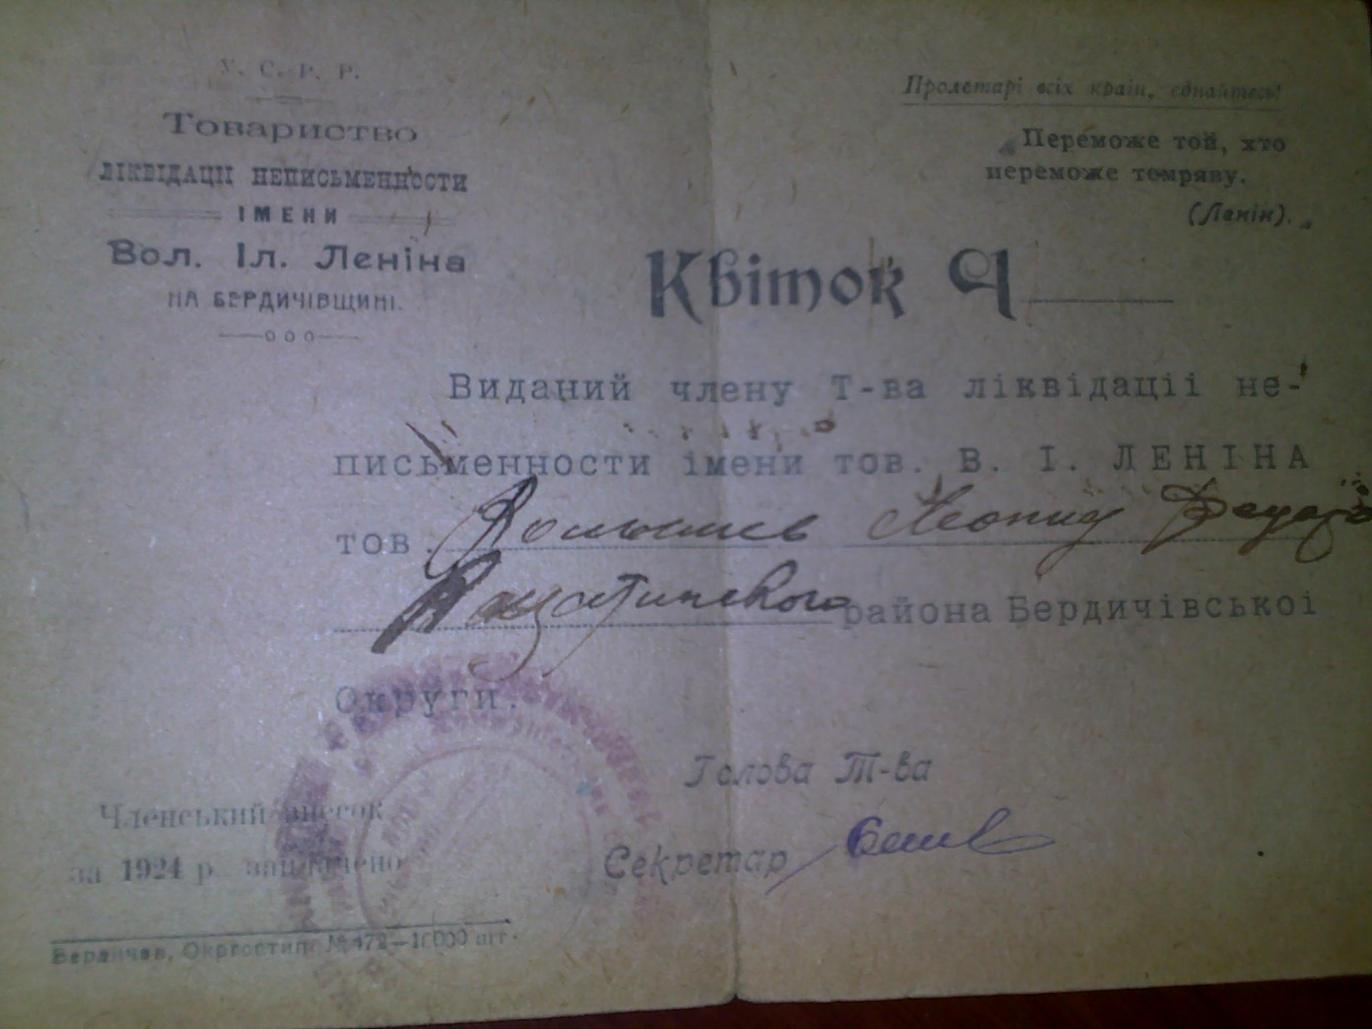 У. С. Р. Р.
Товариство
ЛІКВІДАЦІІ НЕПИСЬМЕННОСТИ
ІМЕНИ
Вол. Іл. Леніна
НА БЕРДИЧІВЩИНІ.
Пролетарі всіх країн, єднайтесь!
„Переможе той, хто
переможе темряву.
(Ленін).„
Квіток Ч
Виданий члену Т-ва ліквідаціі не-
письменности імени тов. В. І. ЛЕНІНА
тов. Леонид
района Бердичівськоі
Округи.
Голова Т-ва
Секретар
Членський внесок
за 1924 р. заплачено
Бердичев, Окргостип. №472—10000 шт.